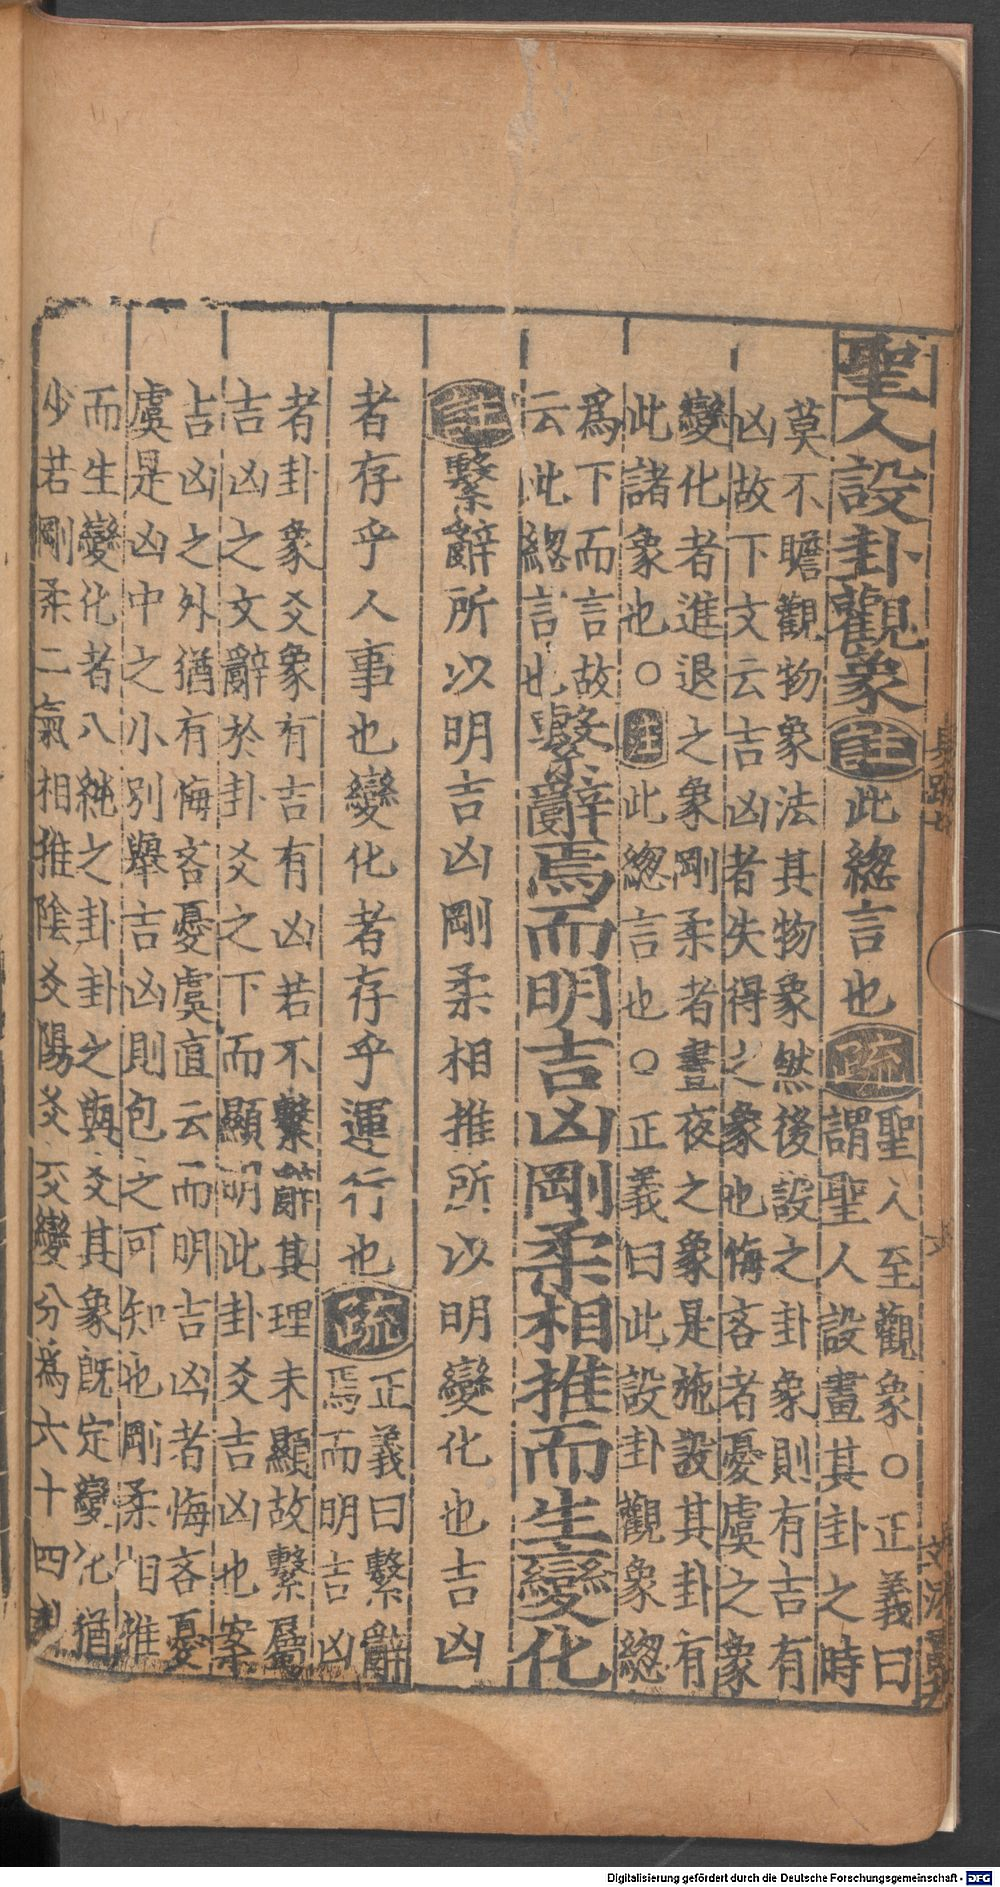 聖人設卦觀象註此緫言也疏聖人至觀象○正義曰
謂聖人設畫其卦之時
莫不瞻觀物象法其物象然後設之卦象則有吉有
凶故下文云吉凶者失得之象也悔吝者憂虞之象
變化者進退之象剛柔者晝夜之象是施設其卦有
此諸象也○註此緫言也○正義曰此設卦觀象緫
爲下而言故
云此緫言也繫辭焉而明吉凶剛柔相推而生變化
註繫辭所以明吉凶剛柔相推所以明變化也吉凶
者存乎人事也變化者存乎運行也疏正義曰繫辭
焉而明吉凶
者卦象爻象有吉有凶若不繫辭其理未顯故繫屬
吉凶之文辭於卦爻之下而顯明此卦爻吉凶也案
吉凶之外猶有悔吝憂虞直云而明吉凶者悔吝憂
虞是凶中之小別舉吉凶則包之可知也剛柔相推
而生變化者八純之卦卦之與爻其象既定變化猶
少若剛柔二氣相推陰爻陽爻交變分爲六十四
Digitalisierung gefördert durch die Deutsche Forschungsgemeinschaft - DFG